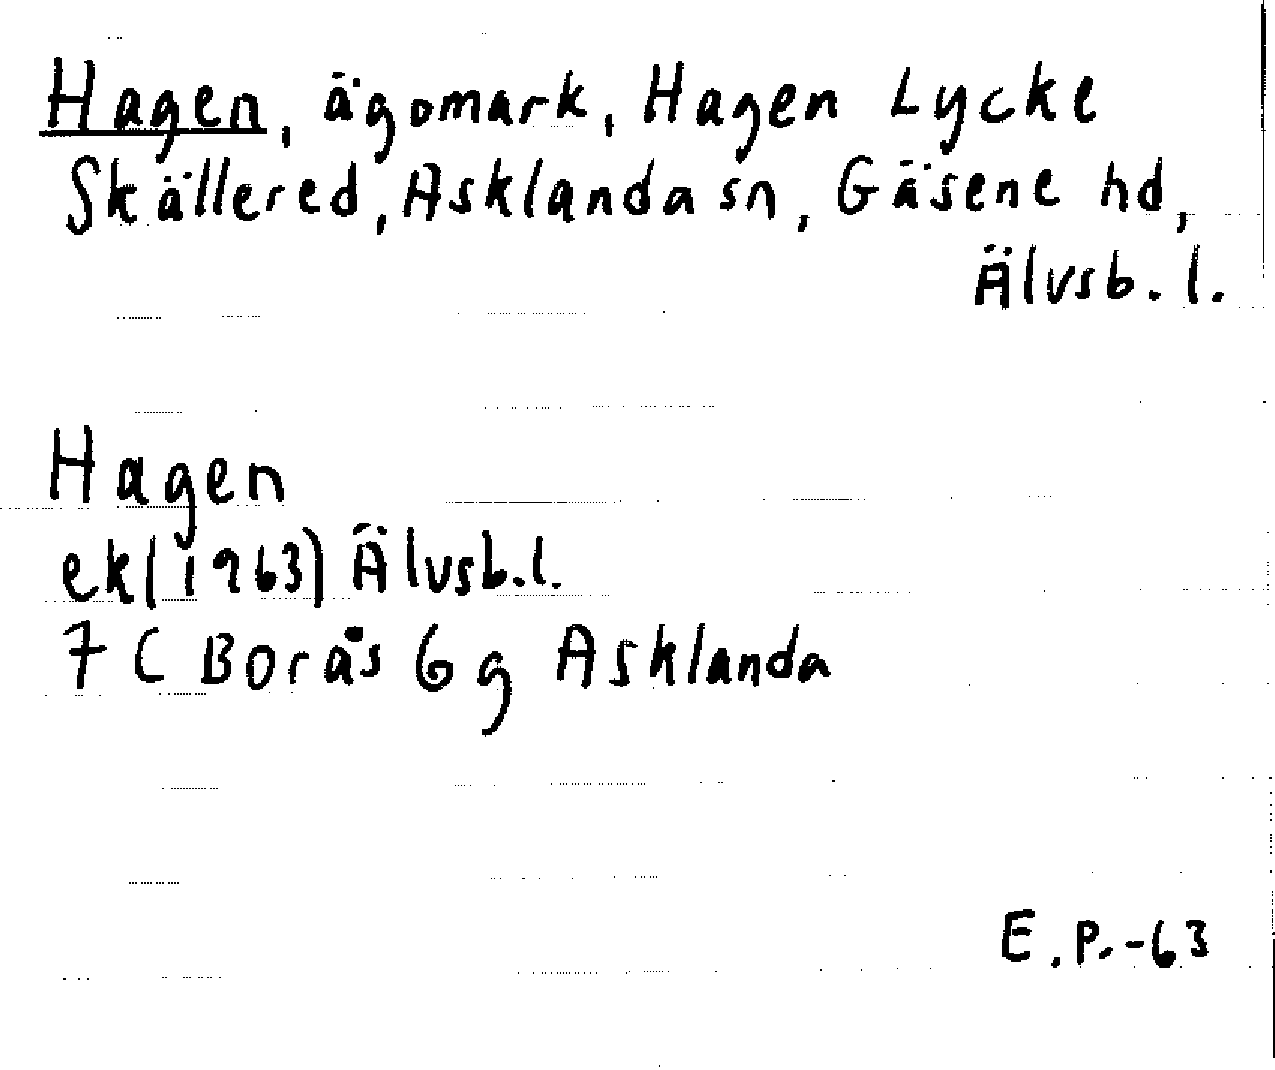 Hagen, ägomark, Hagen Lycke
Skällered, Asklanda sn, Gäsene hd,
Älvsb. l.
Hagen
ek (1963) Älvsb. l.
7 C Borås 6 g Asklanda
E. P. -63